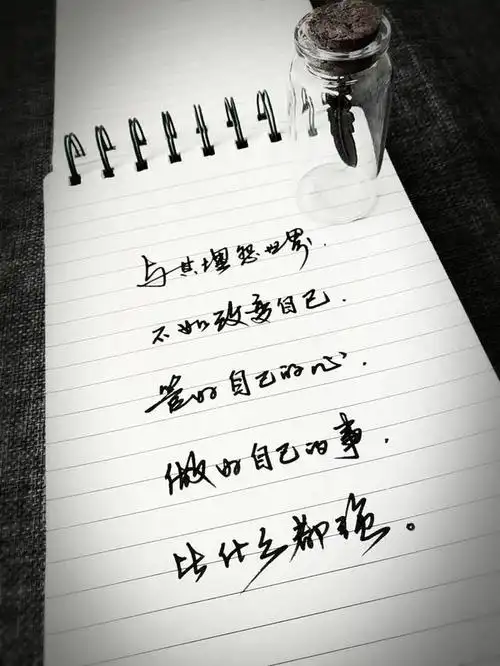 与其埋怨世界，
不如改变自己．
管好自己的心，
做好自己的事，
比什么都强。